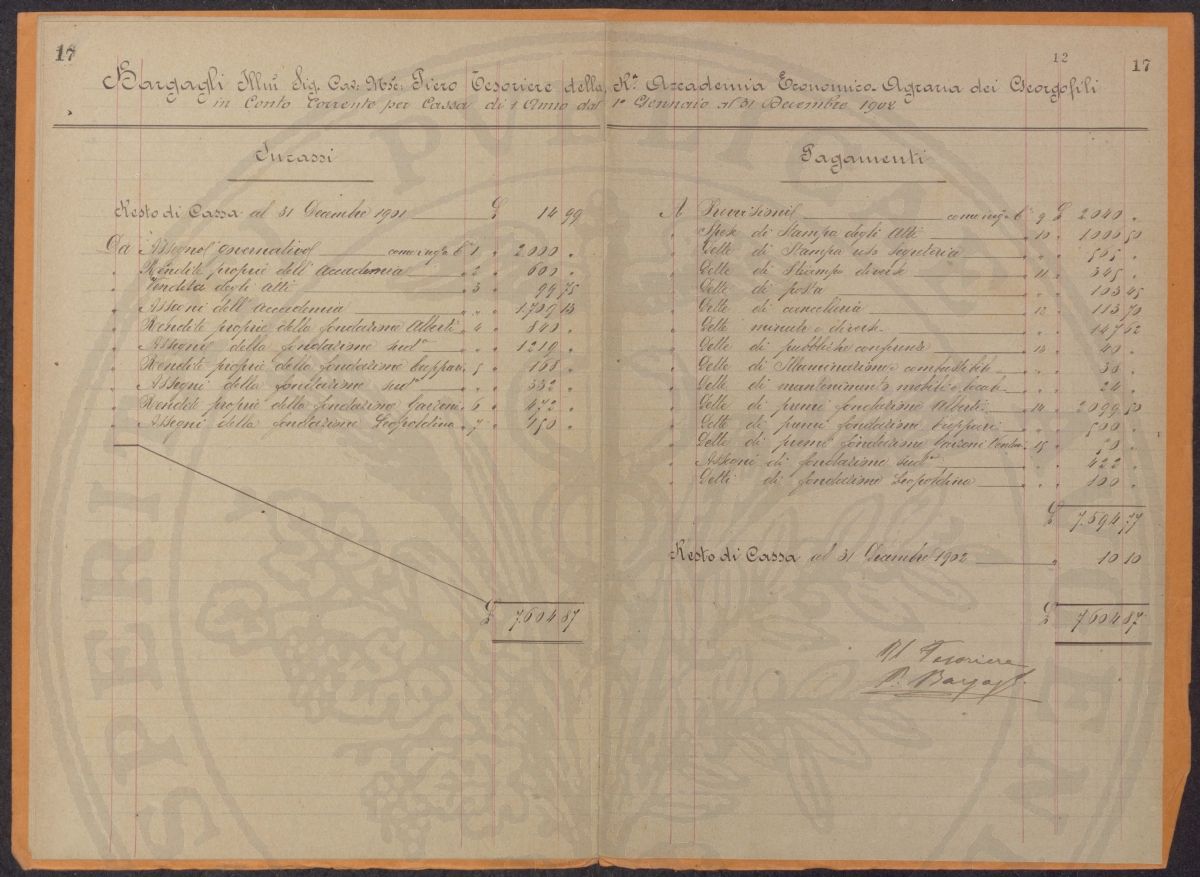 17
12
17
Bargagli Illmo Sig. Cav. Mse. Piero Tesoriere della Ra. Accademia Economico-Agraria dei Georgofili
in Conto Corrente per Cassa di 1 Anno dal 1o Gennaio al 31 Decembre 1902
Incassi
Resto di Cassa al 31 Decembre 1901 £ 14 99
Da Assegno governativo come ingto No 1 " 2000 "
" Rendite proprie dell'Accademia " 2 " 600 "
" Vendita degli Atti " 3 " 99 75
" Assegni dell'Accademia " " " 1.709 13
" Rendite proprie della fondazione Alberti " 4 " 840 "
" Assegni della fondazione sudta " " " 1219 "
" Rendite proprie della fondazione Capponi " 5 " 168 "
" Assegni della fondazione sudta " " " 332 "
" Rendite proprie della fondazione " 6 " 472 "
" Assegni della fondazione Leopoldina " 7 " 150 "
£ 7.604 87
Pagamenti
A Provvisioni come ingto No 9 £ 2040 "
" Spese di Stampa degli Atti " 10 " 1000 50
" Dette di Stampa uso Segreteria " " " 505 "
" Dette di Stampe diverse " 11 " 345 "
" Dette di posta " " " 103 45
" Dette di cancelleria " 12 " 113 70
" Dette minute e diverse " " " 147 62
" Dette di pubbliche conferenze " 13 " 40 "
" Dette di Illuminazione e combustibile " " " 38 "
" Dette di mantenimento mobili e locali " " " 24 "
" Dette di premi fondazione Alberti " 14 " 2099 50
" Dette di premi fondazione Capponi " " " 500 "
" Dette di premi fondazione " 15 "
" Assegni di fondazione sudta " " " 422 "
" Dette di fondazione Leopoldina " " " 100 "
£ 7.594 77
Resto di Cassa al 31 Decembre 1902 " 10 10
£ 7604 87
Il Tesoriere
P. Bargagli
PUBLICAE